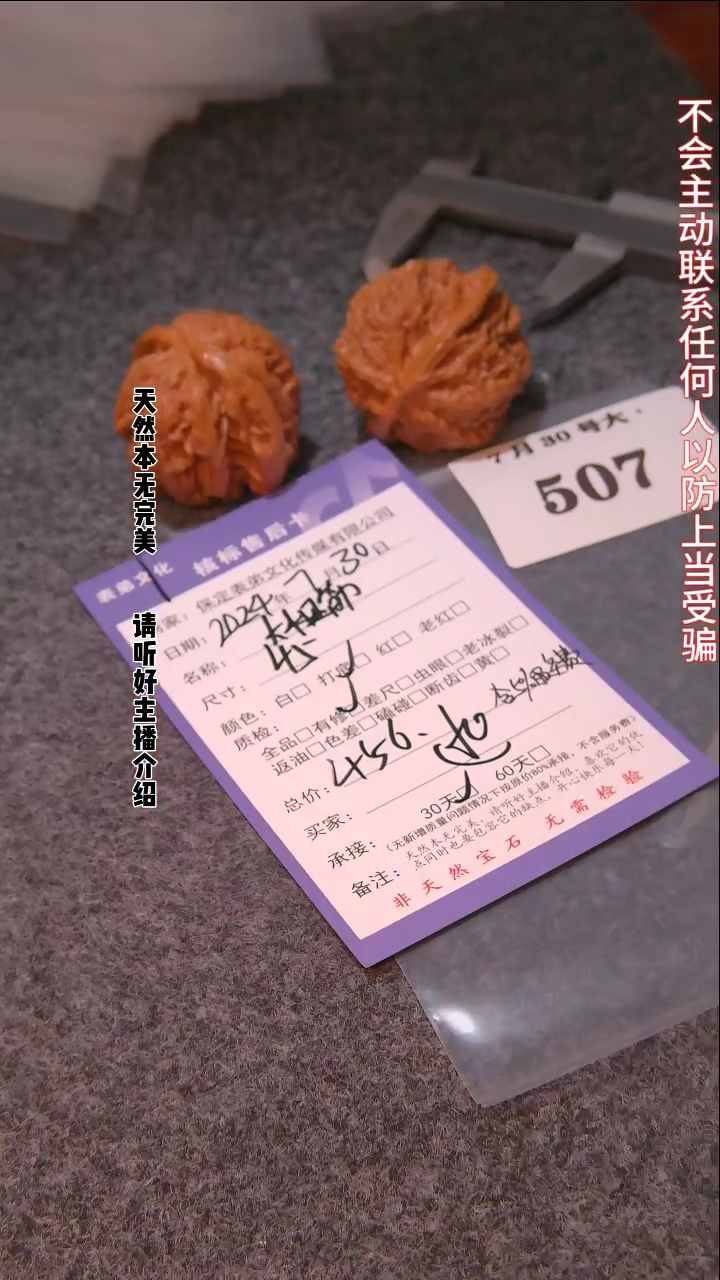 不会主动联系任何人以防上当受骗
天然本无完美 请听好主播介绍
7月30号大
507
表弟文化 核标售后卡
家：保定表弟文化传媒有限公司
日期：2024年7月30日
名称：
尺寸：
颜色：白□ 打底□ 红□ 老红□
质检：全品□有修□差尺□虫眼□老冰裂□
返油□色差□磕碰□断齿□黄□
总价：456.
买家：
承接：30天□ 60天□
(无新增质量问题情况下按原价80%承接，不含服务费)
备注：天然本无完美，请听好主播介绍，喜欢它的优
点同时也要包容它的缺点，开心快乐每一天！
非天然宝石 无需检验